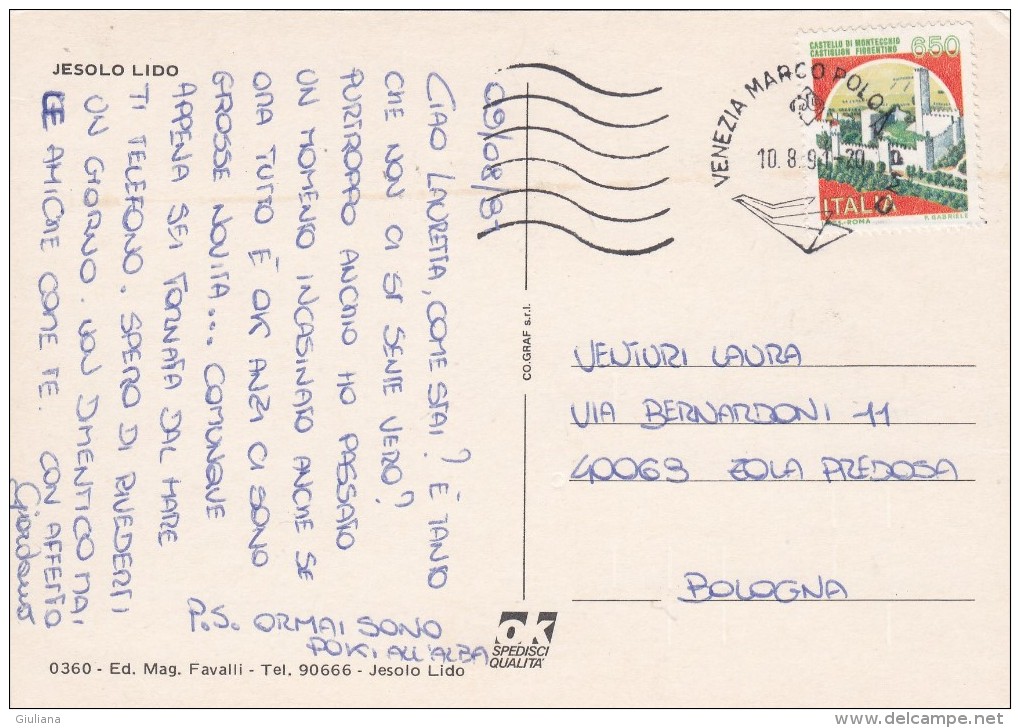 JESOLO LIDO
09/08/91
CIAO LAURETTA, COME STAI? È TANTO
CHE NON CI SI SENTE VERO?
PURTROPPO ANCH'IO HO PASSATO
UN MOMENTO INCASINATO ANCHE SE
ORA TUTTO È OK ANZI CI SONO
GROSSE NOVITA... COMUNQUE
APPENA SEI TORNATA DAL MARE
TI TELEFONO. SPERO DI RIVEDERTI
UN GIORNO. NON DIMENTICO MAI
LE AMICHE COME TE. CON AFFETTO
Giordano
P.S. ORMAI SONO
POKI ALL'ALBA
CASTELLO DI MONTECCHIO
CASTIGLION FIORENTINO
650
ITALIA
ROMA
P. GABRIELE
VENEZIA MARCO POLO
10.8.91-20
CO.GRAF s.r.l.
VENTURI LAURA
VIA BERNARDONI 11
40069 ZOLA PREDOSA
BOLOGNA
OK
SPEDISCI
QUALITA'
0360 - Ed. Mag. Favalli - Tel. 90666 - Jesolo Lido
Giuliana
www.delcampe.net